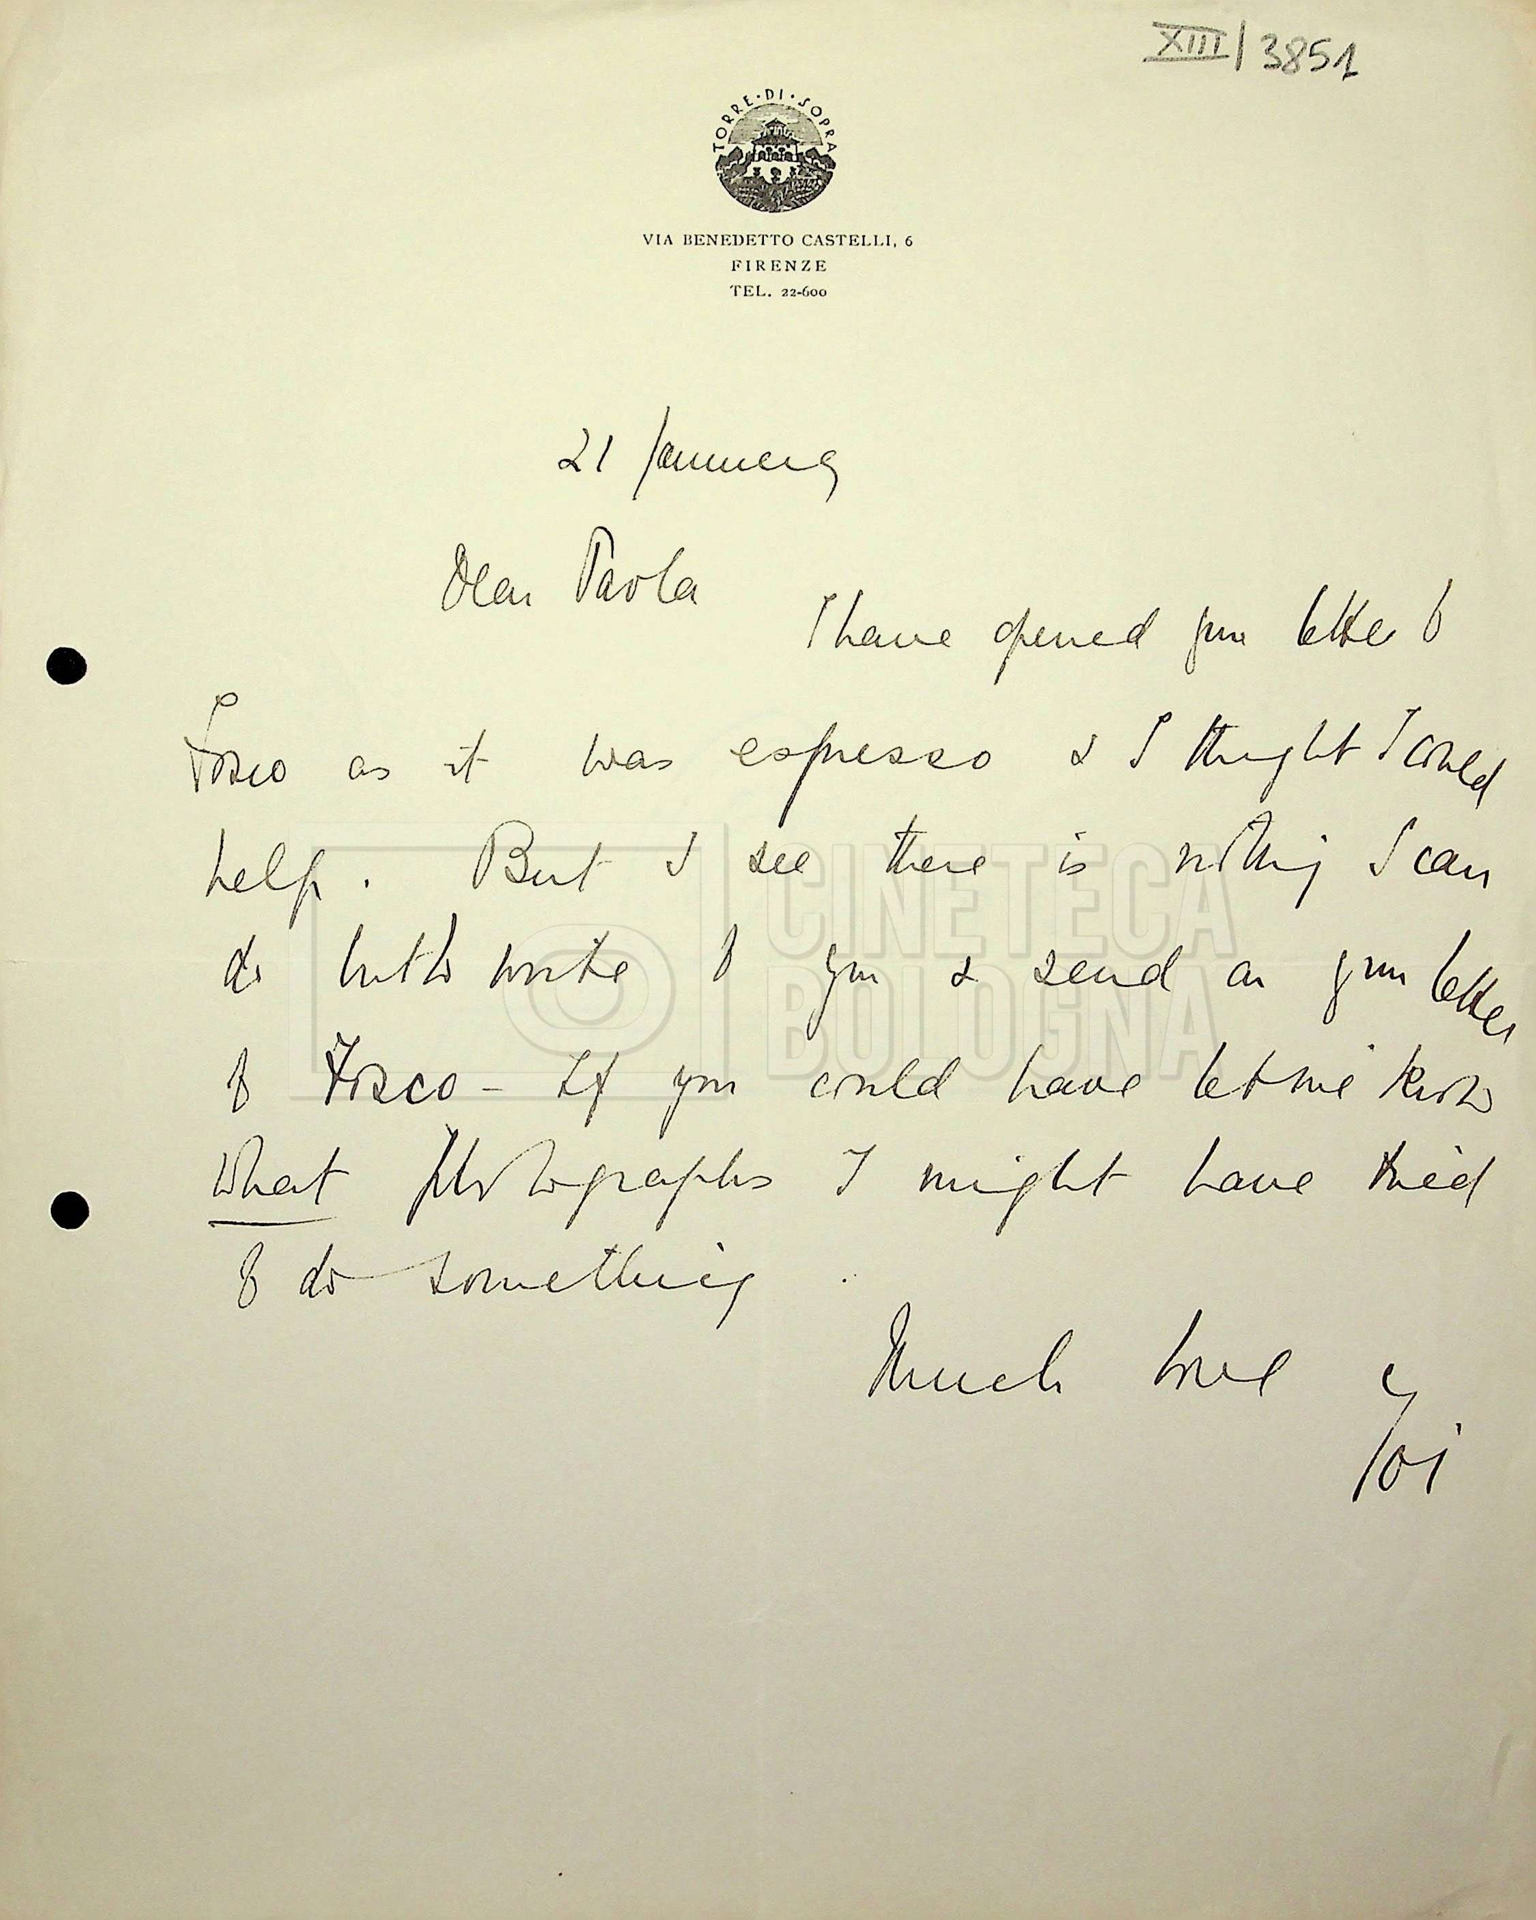 XIII/3851
TORRE·DI·SOPRA
VIA BENEDETTO CASTELLI, 6
FIRENZE
TEL. 22-600
21 January
Dear Paola
I have opened your letter to
Fosco as it was espresso & I thought I could
help. But I see there is nothing I can
do but to write to you & send on your letter
to Fosco - If you could have let me know
what photographs I might have tried
to do something.
Much love
Yoi
CINETECA
BOLOGNA